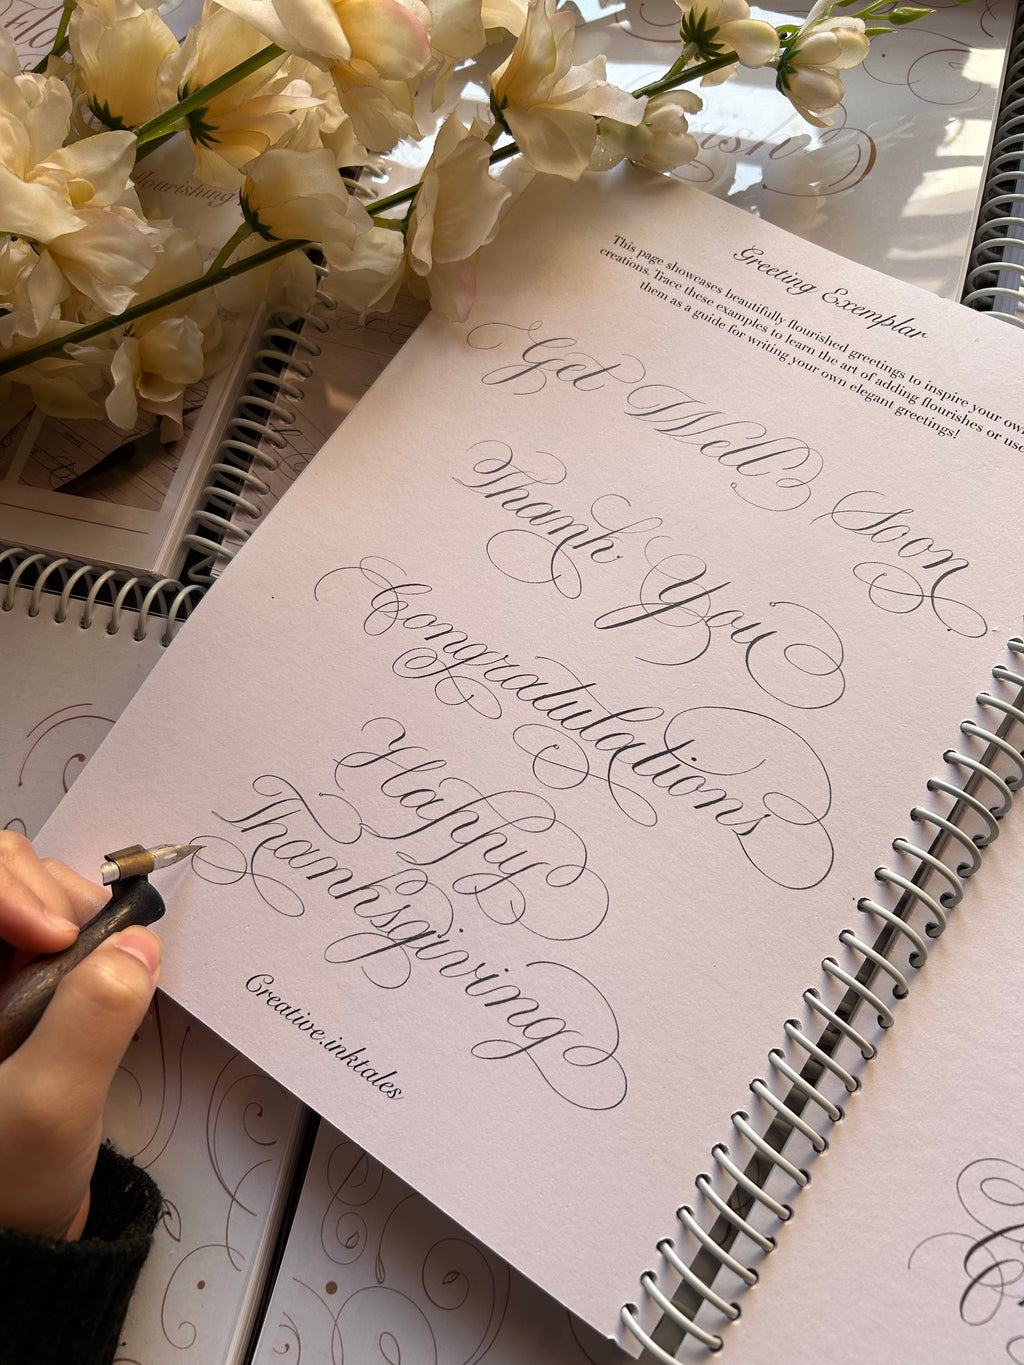 flourishing
Greeting Exemplar
This page showcases beautifully flourished greetings to inspire your own
creations. Trace these examples to learn the art of adding flourishes or use
them as a guide for writing your own elegant greetings!
Get Well Soon
Thank You
Congratulations
Happy
Thanksgiving
Creative.inktales